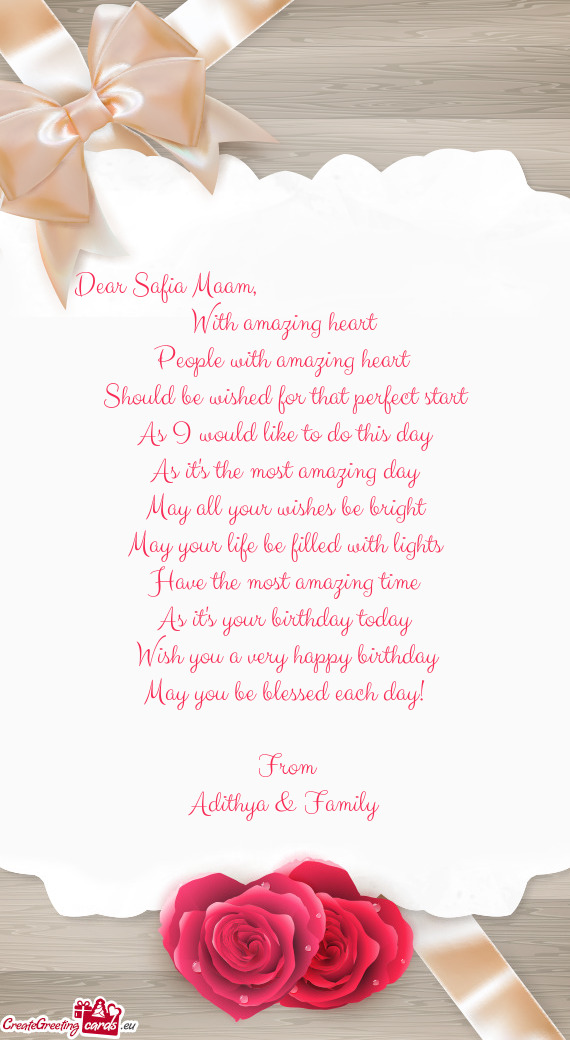 Dear Safia Maam,
With amazing heart
People with amazing heart
Should be wished for that perfect start
As I would like to do this day
As it's the most amazing day
May all your wishes be bright
May your life be filled with lights
Have the most amazing time
As it's your birthday today
Wish you a very happy birthday
May you be blessed each day!
From
Adithya & Family
CreateGreeting cards .eu